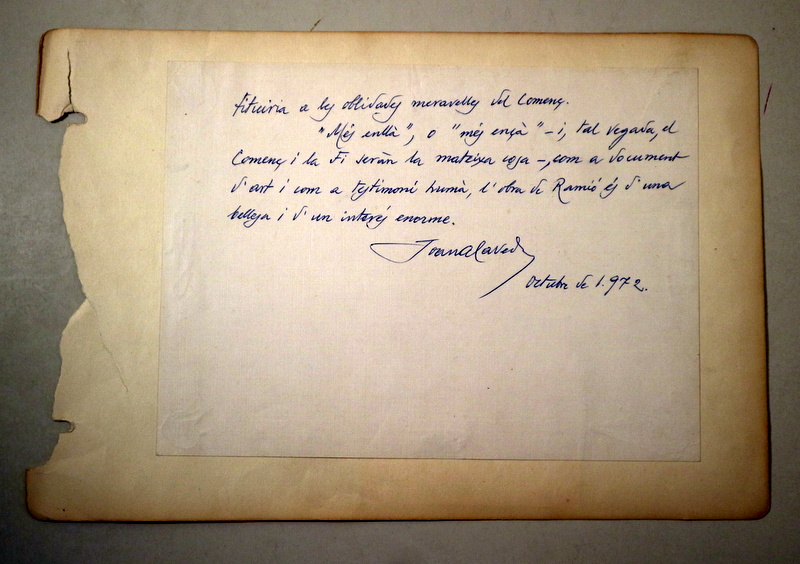 tituiria a les oblidades meravelles del Començ.
"Més enllà", o "més ençà" – i, tal vegada, el
Començ i la Fi seràn la mateixa cosa –, com a document
d'art i com a testimoni humà, l'obra de Ramió és d'una
bellesa i d'un interés enorme.
Joan Alavedra
Octubre de 1.972.